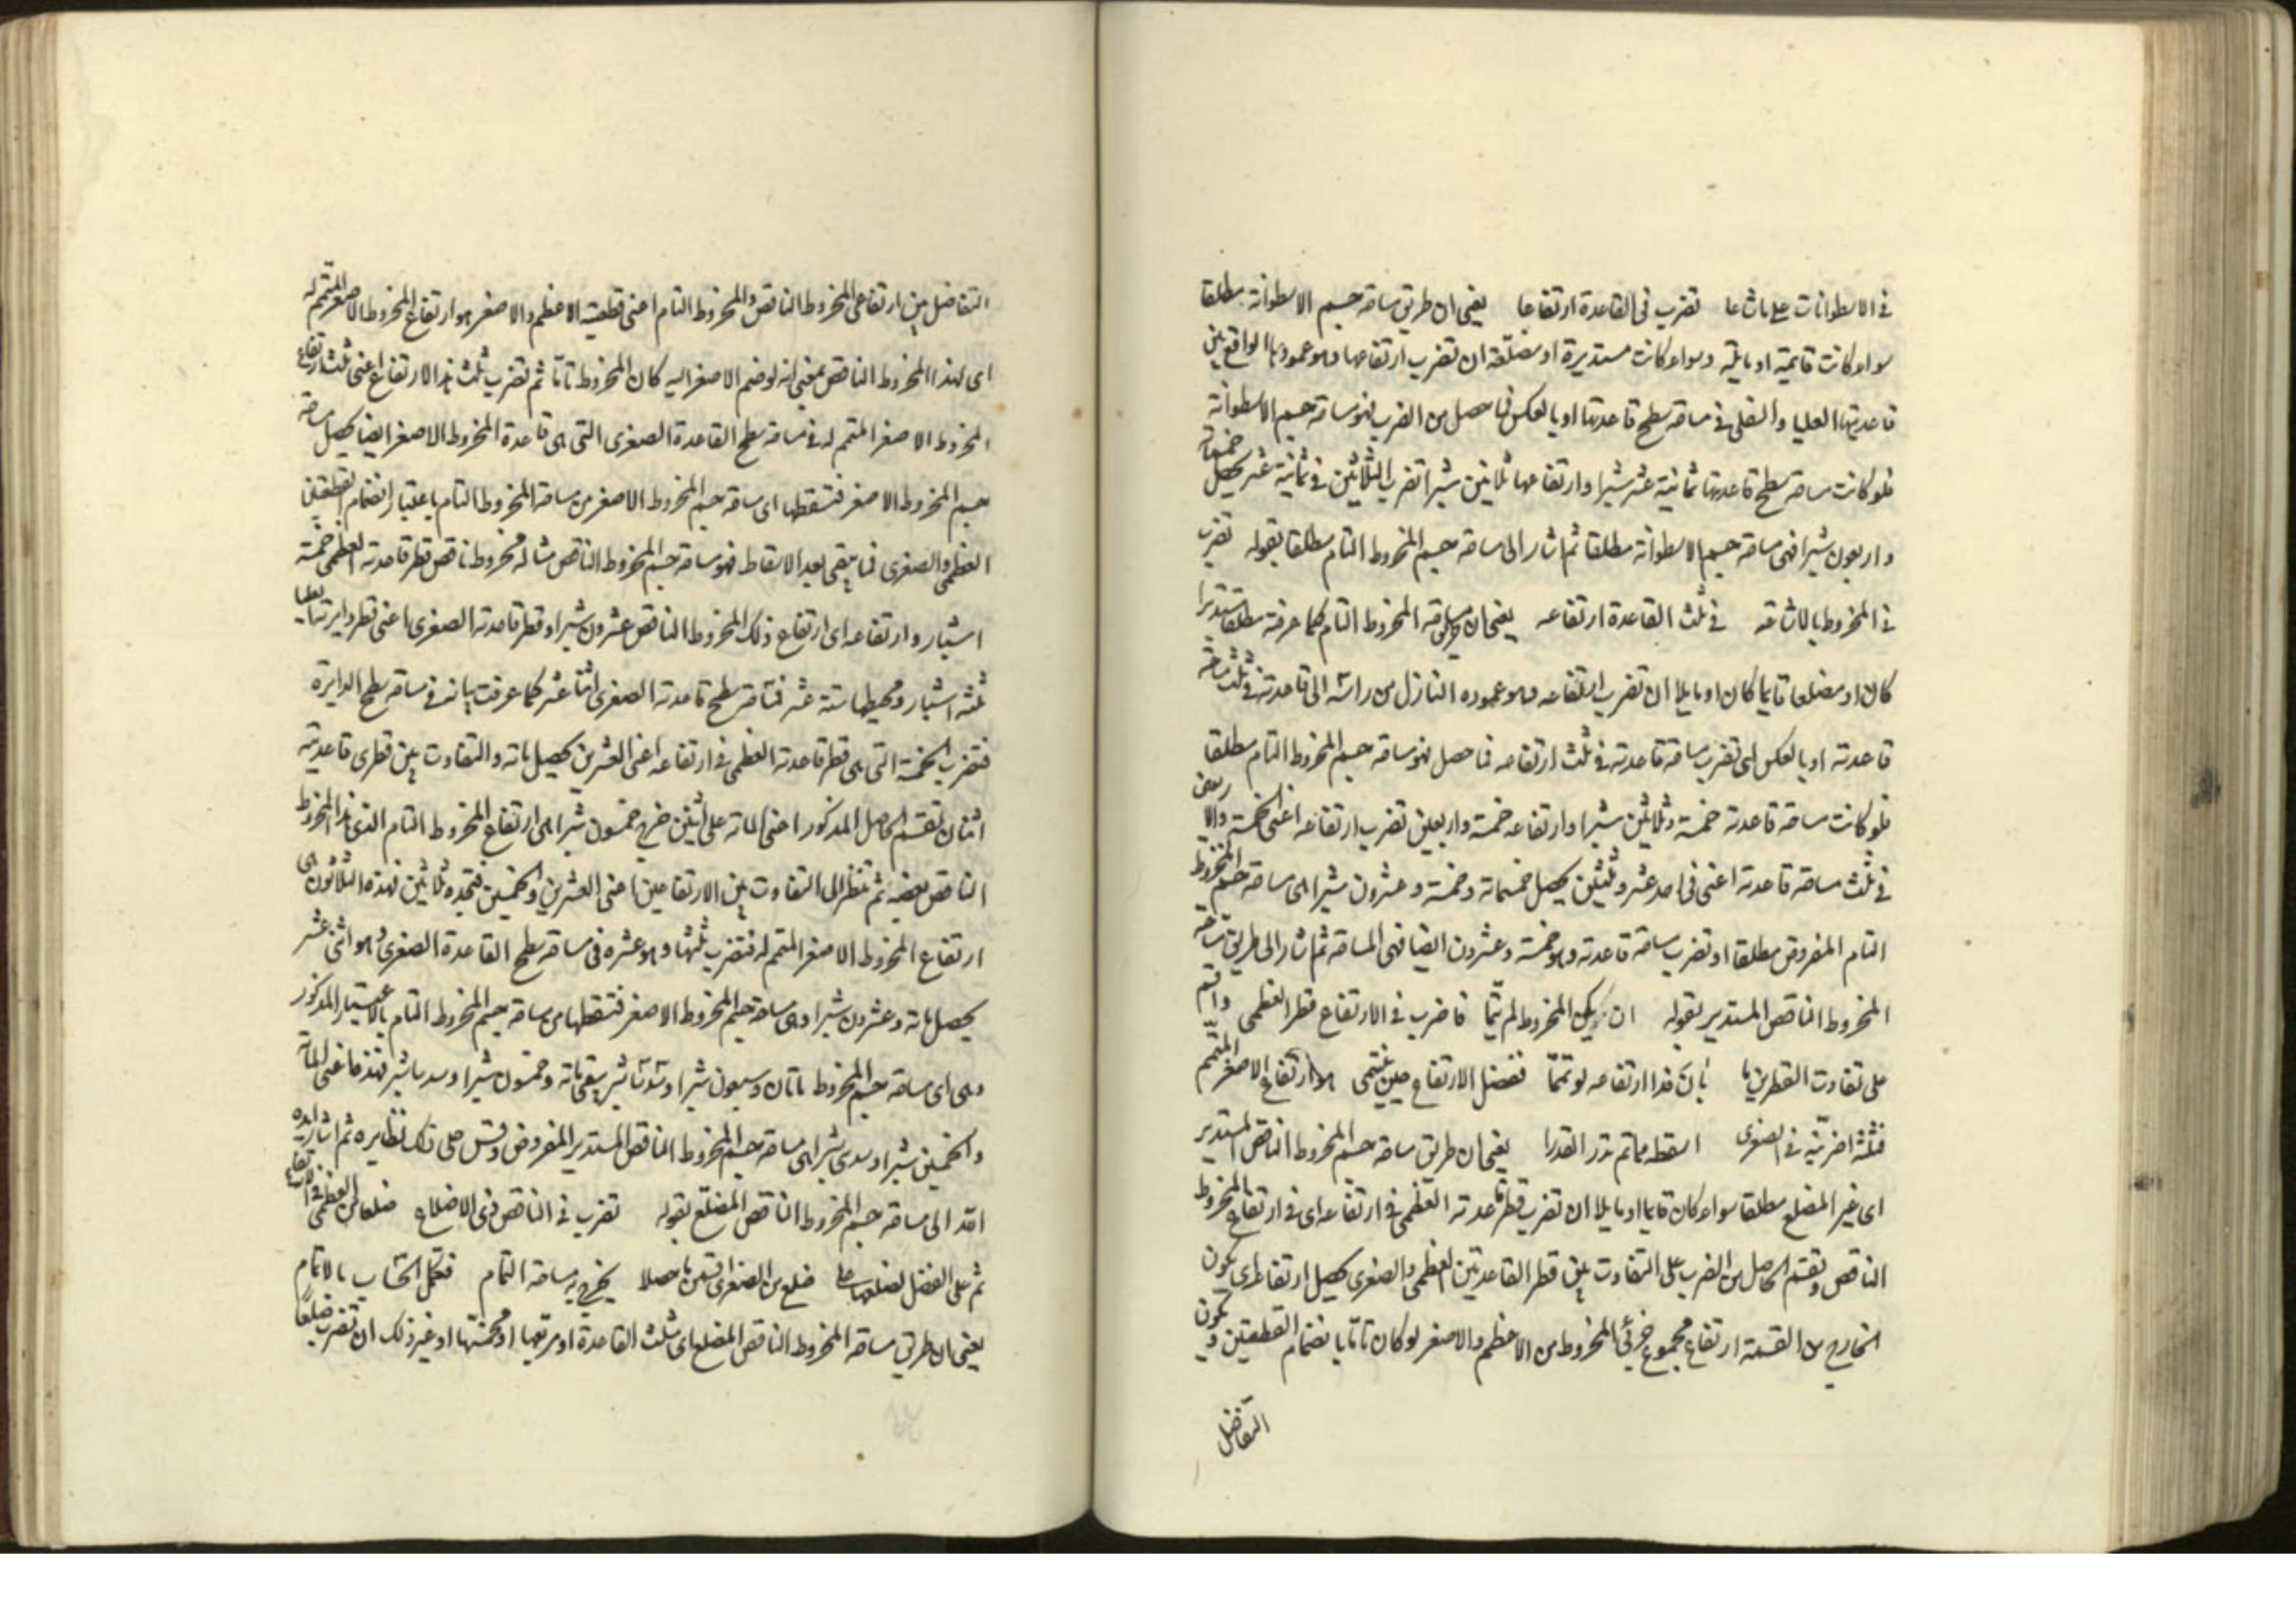 في الاسطوانات على ما شاعا تضرب في القاعدة ارتفاعا يعني ان طريق مساحة جسم الاسطوانة مطلقا
سواء كانت قايمة او مايلة وسواء كانت مستديرة او مضلعة ان تضرب ارتفاعها وهو عمودها الواقع بين
قاعدتيها العليا والسفلى في مساحة سطح قاعدتها او بالعكس فما حصل من الضرب فهو مساحة جسم الاسطوانة
فلو كانت مساحة سطح قاعدتها ثمانية عشر شبرا وارتفاعها ثلاثين شبرا تضرب الثلاثين في ثمانية عشر يحصل خمسمائة
واربعون شبرا فهي مساحة جسم الاسطوانة مطلقا ثم اشار الى مساحة جسم المخروط التام مطلقا بقوله تضرب
في المخروط بالاشاعة في ثلث القاعدة ارتفاعه يعني ان مساحة المخروط التام كما عرفته مطلقا مستديرا
كان او مضلعا قايما كان او مايلا ان تضرب ارتفاعه وهو عموده النازل من راسه الى قاعدته في ثلث مساحة
قاعدته او بالعكس اي تضرب مساحة قاعدته في ثلث ارتفاعه فما حصل فهو مساحة جسم المخروط التام مطلقا
فلو كانت مساحة قاعدته خمسة وثلاثين شبرا وارتفاعه خمسة واربعين تضرب ارتفاعه اعني الخمسة والاربعين
في ثلث مساحة قاعدته اعني في احد عشر وثلثين يحصل خمسمائة وخمسة وعشرون شبرا هي مساحة جسم المخروط
التام المفروض مطلقا او تضرب مساحة قاعدته وهو خمسة وعشرون ايضا فهي المساحة ثم اشار الى طريق مساحة
المخروط الناقص المستدير بقوله ان يكن المخروط لم يتما فاضرب في الارتفاع قطر العظمى واقسم
على تفاوت القطرين يا بان فذا ارتفاعه لو تمما ففضل الارتفاع حين ينتمى هو ارتفاع الاصغر المتمم
فثلثه اضربنه في الصغرى اسقطه مما تم تدر القدرا يعني ان طريق مساحة جسم المخروط الناقص المستدير
اي غير المضلع مطلقا سواء كان قايما او مايلا ان تضرب قطر قاعدته العظمى في ارتفاعه اي في ارتفاع المخروط
الناقص وتقسم الحاصل من الضرب على التفاوت بين قطر القاعدتين العظمى والصغرى يحصل ارتفاعه اي يكون
الخارج من القسمة ارتفاع مجموع جزئي المخروط من الاعظم والاصغر لو كان تاما بانضمام القطعتين ويكون
التفاضل
التفاضل بين ارتفاعي المخروط الناقص والمخروط التام اعني قطعتيه الاعظم والاصغر هو ارتفاع المخروط الاصغر المتمم له
اي لهذا المخروط الناقص بمعنى انه لو ضم الاصغر اليه كان المخروط تاما ثم تضرب ثلث هذا الارتفاع اعني ثلث ارتفاع
المخروط الاصغر المتمم له في مساحة سطح القاعدة الصغرى التي هي قاعدة المخروط الاصغر ايضا يحصل مساحة
جسم المخروط الاصغر فتسقطها اي مساحة جسم المخروط الاصغر من مساحة المخروط التام باعتبار انضمام القطعتين
العظمى والصغرى فما يبقى بعد الاسقاط فهو مساحة جسم المخروط الناقص مثاله مخروط ناقص قطر قاعدته العظمى خمسة
اشبار وارتفاعه اي ارتفاع ذلك المخروط الناقص عشرون شبرا وقطر قاعدته الصغرى اعني قطر دايرته العليا
ثلثة اشبار ومحيطها ستة عشر فمساحة سطح قاعدته الصغرى اثنا عشر كما عرفت بيانه في مساحة سطح الدايرة
فتضرب الخمسة التي هي قطر قاعدته العظمى في ارتفاعه اعني العشرين يحصل ماته والتفاوت بين قطري قاعدتيه
اثنان تقسم الحاصل المذكور اعني المائة على اثنين خرج خمسون شبرا هي ارتفاع المخروط التام الذي هذا المخروط
الناقص بعضه ثم تنظر الى التفاوت بين الارتفاعين اعني العشرين والخمسين فتجده ثلاثين فهذه الثلاثون هي
ارتفاع المخروط الاصغر المتمم له فتضرب ثلثها وهو عشرة في مساحة سطح القاعدة الصغرى وهو اثنى عشر
يحصل ماته وعشرون شبرا وهي مساحة جسم المخروط الاصغر فتسقطها من مساحة جسم المخروط التام بالاعتبار المذكور
وهي اي مساحة جسم المخروط مائتان وسبعون شبرا وسدسا شبر يبقى ماته وخمسون شبرا وسدسا شبر فهذه اعني المائة
والخمسين شبرا وسدسي شبر هي مساحة جسم المخروط الناقص المستدير المفروض وقس على ذلك نظايره ثم اشار ايده
الله الى مساحة جسم المخروط الناقص المضلع بقوله تضرب في الناقص ذي الاضلاع ضلعا من العظمى في الارتفاع
ثم على الفضل لضلعها على ضلع من الصغرى اقسمن ما حصلا يخرج به مساحة التمام فكمل الحساب بالاتمام
يعني ان طريق مساحة المخروط الناقص المضلع اي مثلث القاعدة او مربعها او مخمسها او غير ذلك ان تضرب ضلعا